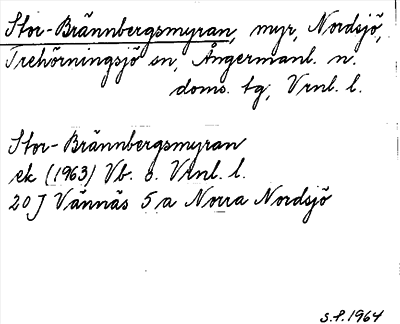 Stor-Brännbergsmyran, myr, Nordsjö,
Trehörningsjö sn, Ångermanl. n.
doms. tg, Vrnl. l.
Stor-Brännbergsmyran
ek (1963) Vb. o. Vrnl. l.
20 J Vännäs 5 a Norra Nordsjö
S.F. 1964